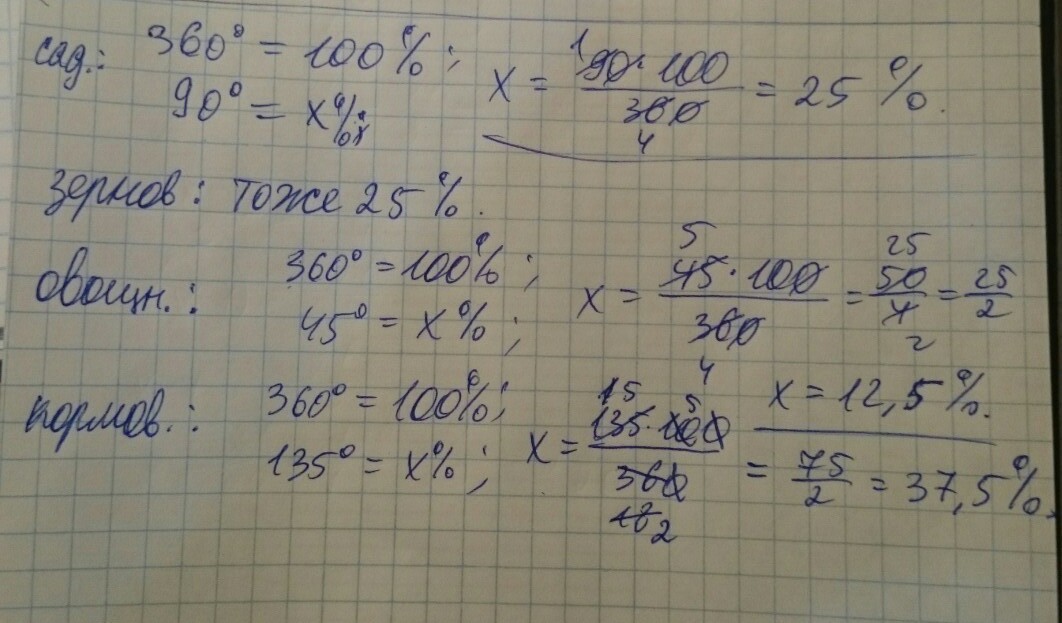 сад.: 360° = 100%; x = 90·100/360 = 25%.
1
90° = x%;
4
зернов: тоже 25%.
овощн.: 360° = 100%; x = 45·100/360 = 50/4 = 25/2
5 25
45° = x%;
4 2
x = 12,5%.
кормов.: 360° = 100%; x = 135·100/360 = 75/2 = 37,5%.
15 5
135° = x%;
18 2